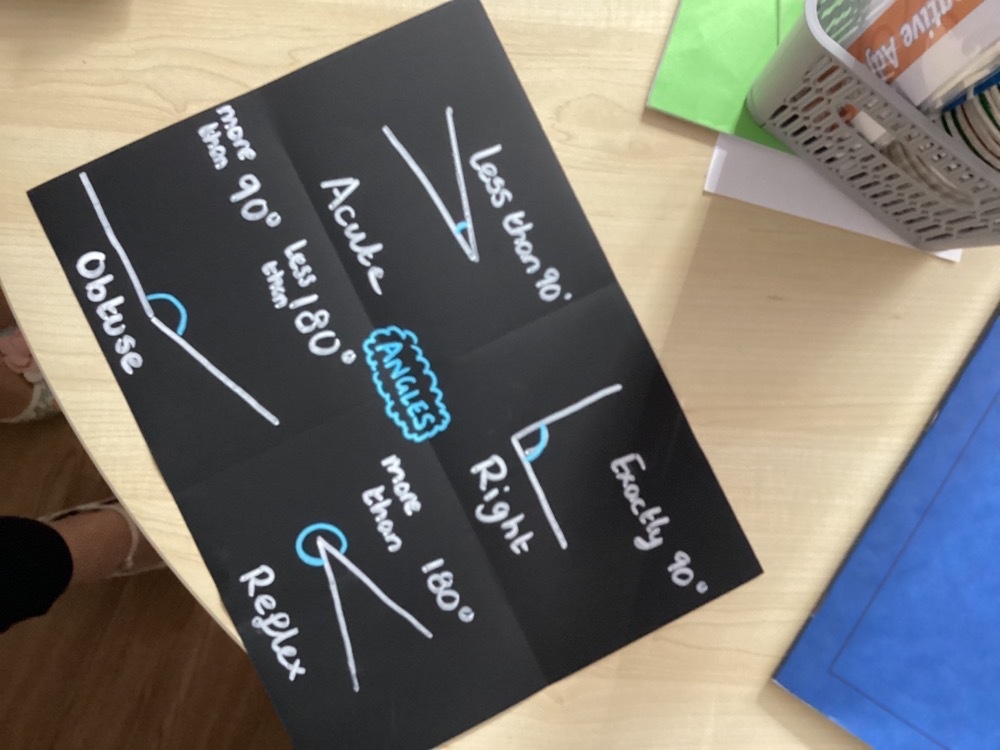 Less than 90°
Acute
Exactly 90°
Right
ANGLES
more
than 90° less
than 180°
Obtuse
more
than 180°
Reflex
ative Adj